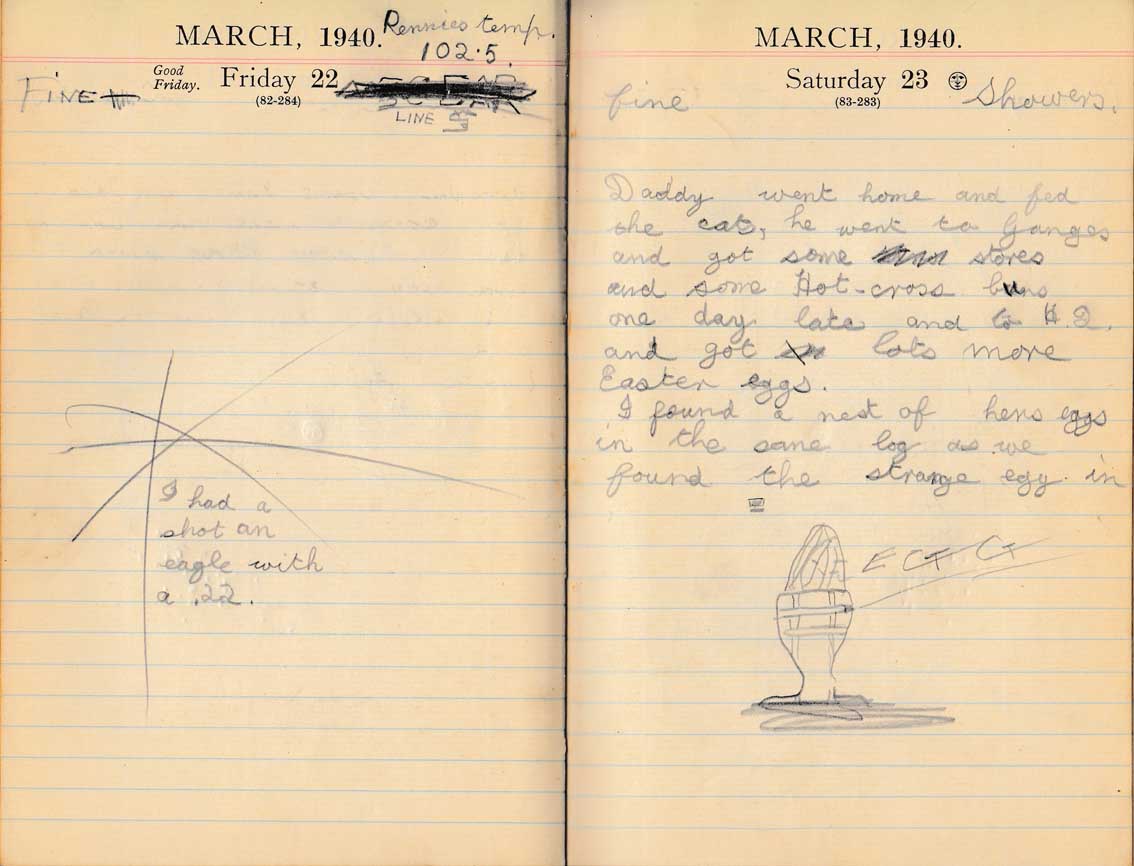 MARCH, 1940.
Rennies temp.
102.5.
Good Friday.
Friday 22
(82-284)
FINE
LINE
I had a
shot an
eagle with
a .22.
MARCH, 1940.
Saturday 23
(83-283)
fine
Showers.
Daddy went home and fed
the cats, he went to Ganges
and got some stores
and some Hot-cross buns
one day late and to
and got lots more
Easter eggs.
I found a nest of hens eggs
in the same log as we
found the strange egg in